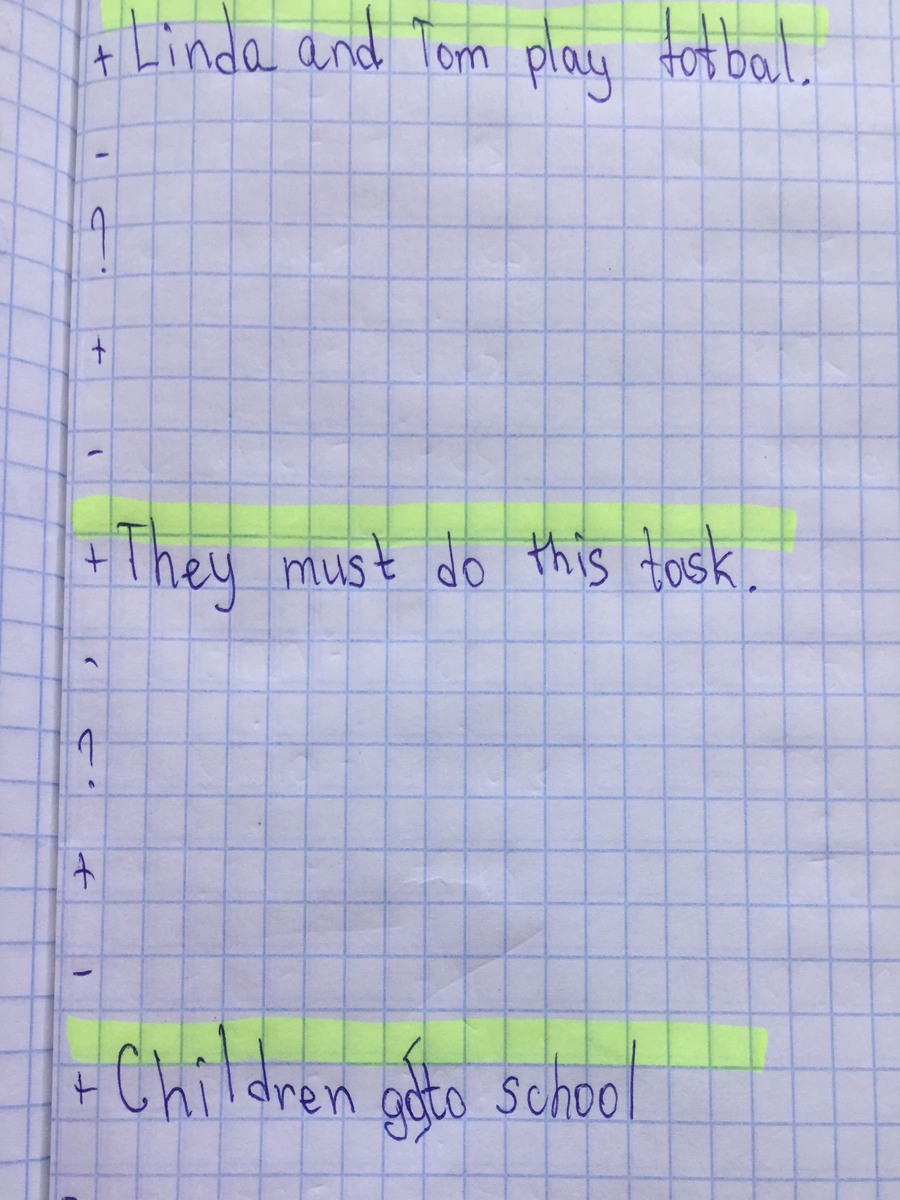 + Linda and Tom play fotbal.
-
?
+
-
+ They must do this task.
-
?
+
-
+ Children go to school
-